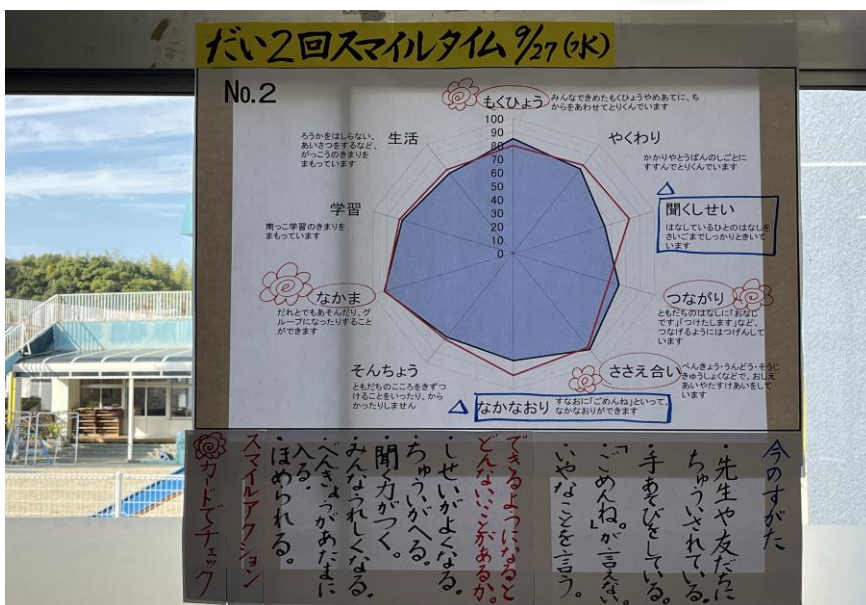 だい2回スマイルタイム 9/27(水)
No.2
もくひょう
みんなできめたもくひょうやめあてに、ち
からをあわせてとりくんでいます
100
90
80
70
60
50
40
30
20
10
0
やくわり
かかりやとうばんのしごとに
すすんでとりくんでいます
聞くしせい
はなしているひとのはなしを
さいごまでしっかりときいて
います
つながり
ともだちのはなしに「おなじ
です」「つけたします」など、
つなげるようにはつげんして
います
ささえ合い
べんきょう・うんどう・そうじ
きゅうしょくなどで、おしえ
あいやたすけあいをして
います
なかなおり
すなおに「ごめんね」といって、
なかなおりができます
そんちょう
ともだちのこころをきずつ
けることをいったり、から
かったりしません
なかま
だれとでもあそんだり、グ
ループになったりすること
ができます
学習
南っこ学習のきまりを
まもっています
生活
ろうかをはしらない、
あいさつをするなど、
がっこうのきまりを
まもっています
今のすがた
・先生や友だちに
ちゅういされている。
・手あそびをしている。
・「ごめんね。」が言えない。
・いやなことを言う。
できるようになると
どんないいことがあるか。
・しせいがよくなる。
・ちゅういがへる。
・聞く力がつく。
・みんなうれしくなる。
・べんきょうがあたまに
入る。
・ほめられる。
スマイルアクション
カードでチェック